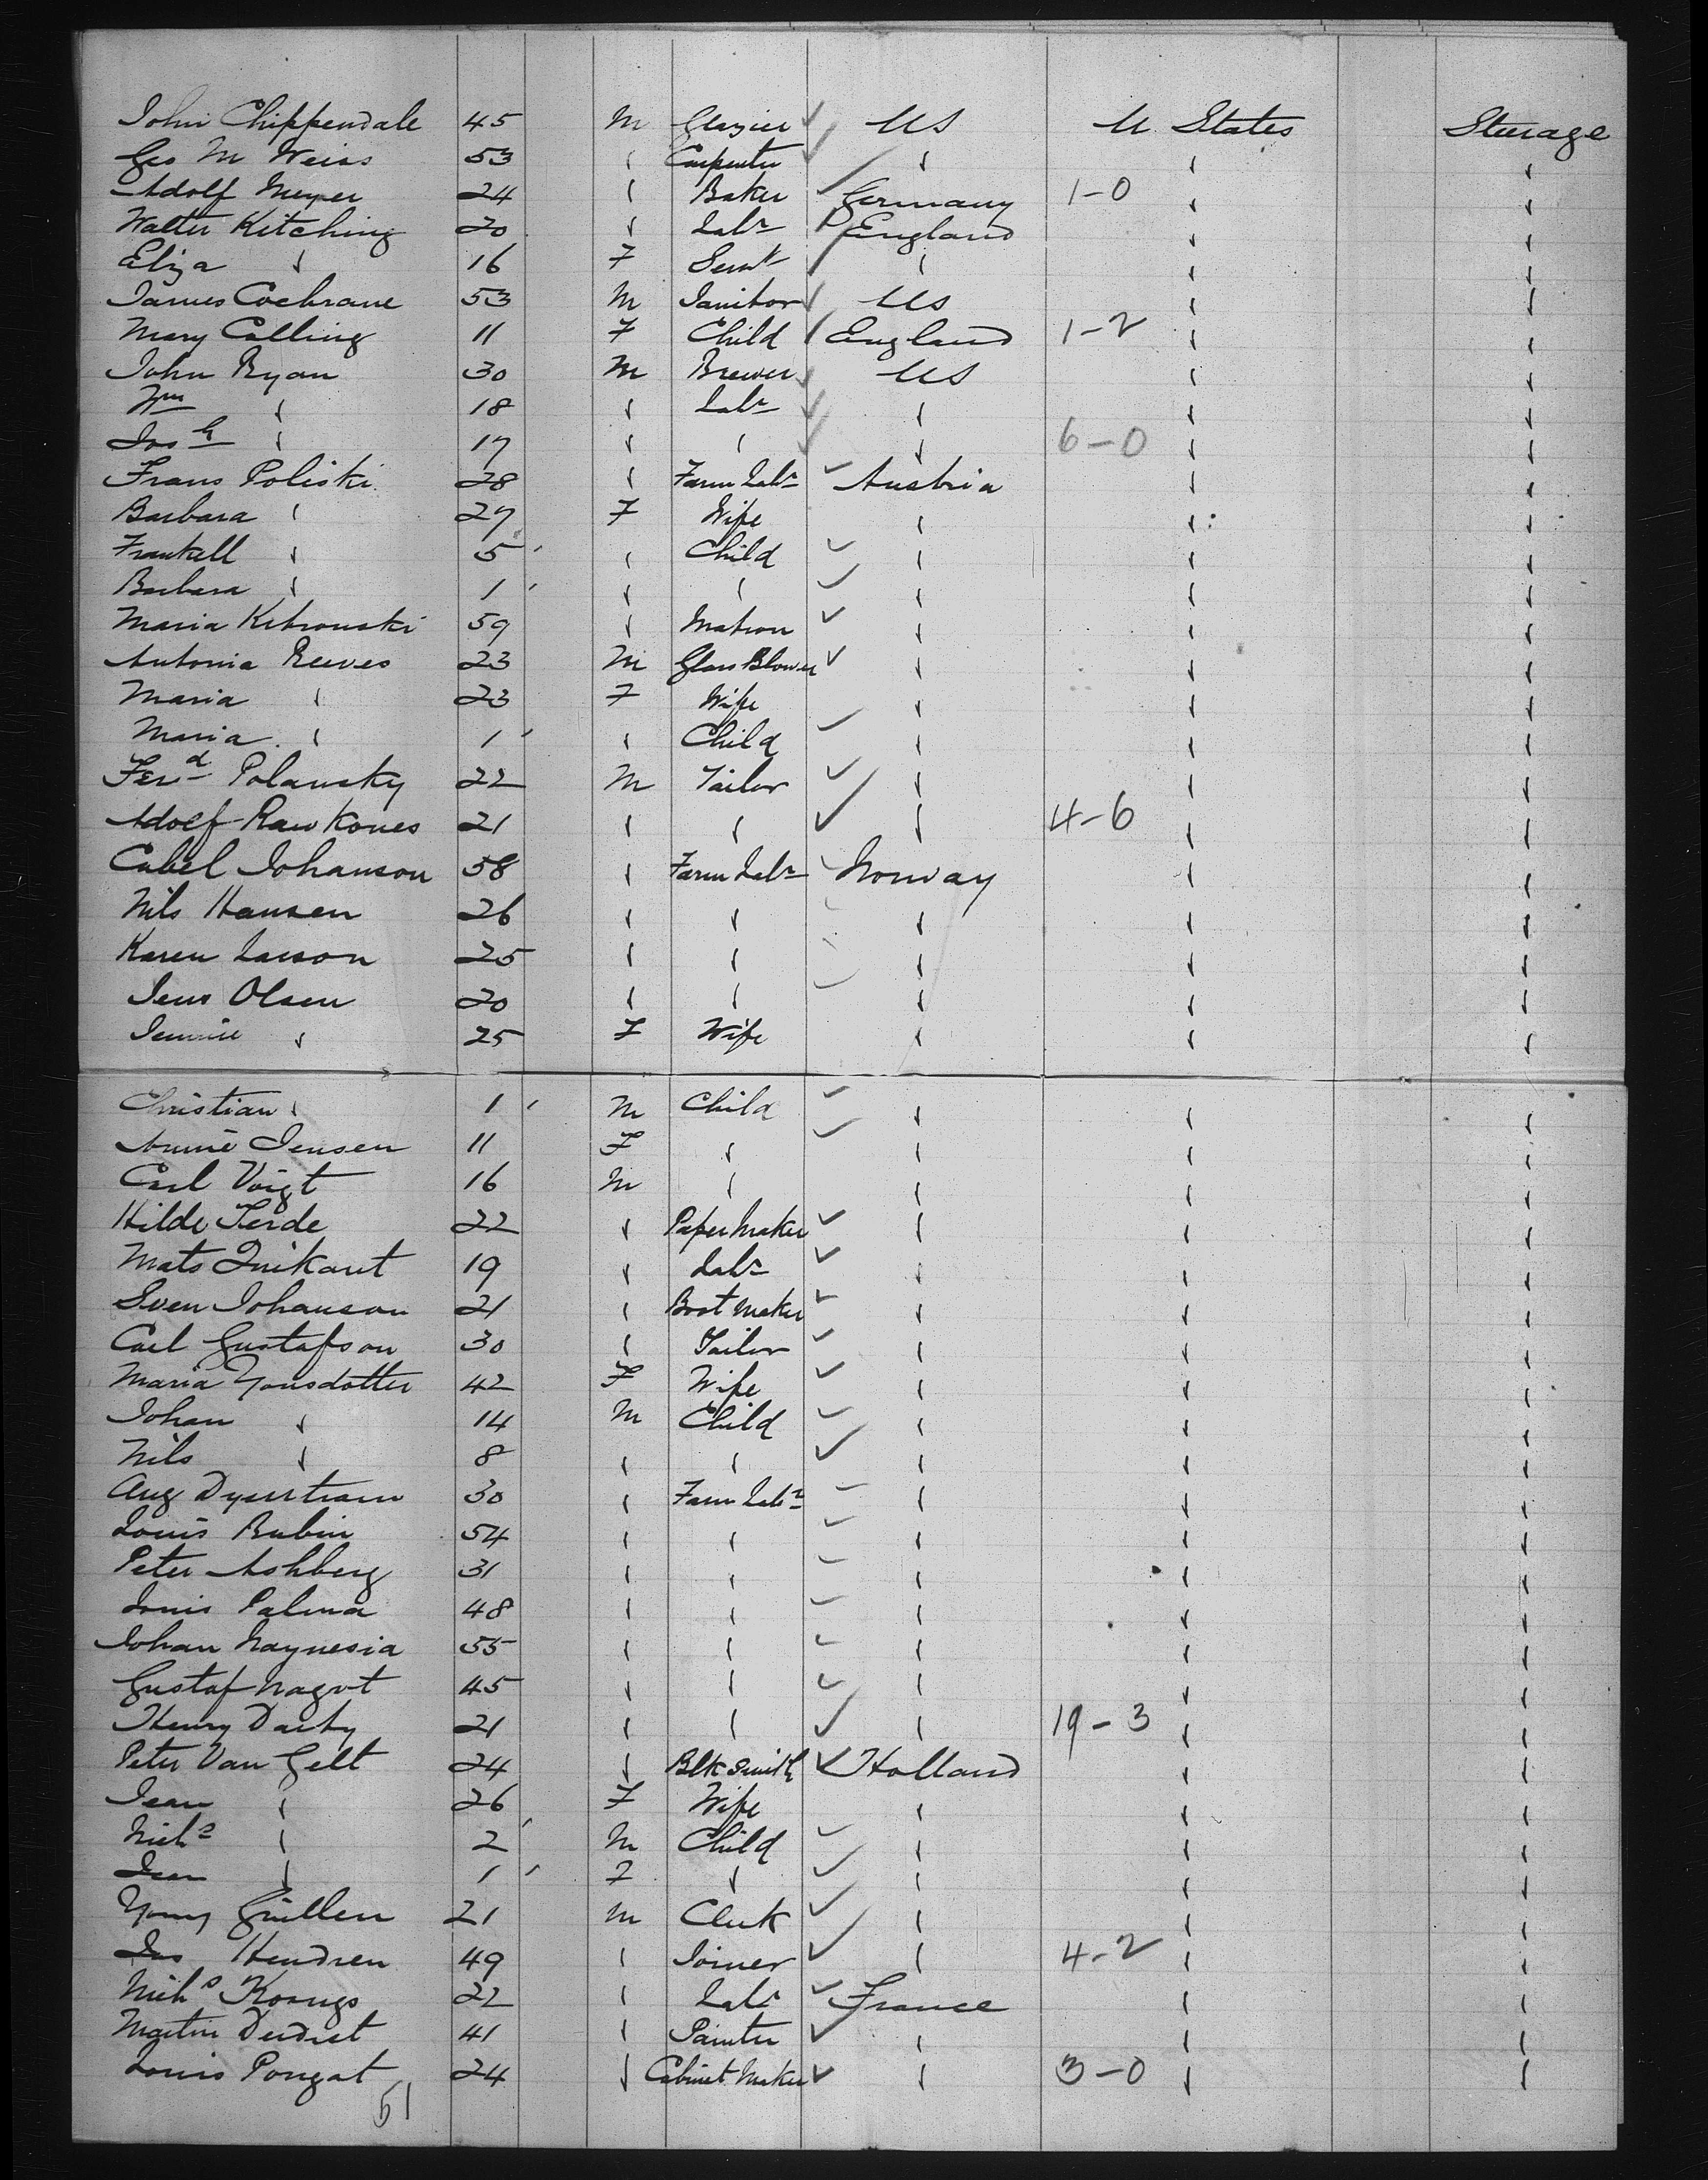 John Chippendale 45 M Glazier ✓ US U States Steerage
Geo M Weiss 53 " Carpenter ✓ " " "
Adolf Meyer 24 " Baker ✓ Germany 1-0 " "
Walter Kitching 20 " Labr England " "
Eliza " 16 F Servt " " "
James Cochrane 53 M Janitor US " "
Mary Calling 11 F Child England 1-2 " "
John Ryan 30 M Brewer ✓ US " "
Wm " 18 " Labr ✓ " " "
Josh " 17 " " ✓ " 6-0 " "
Frans Poliski 28 " Farm Labr ✓ Austria " "
Barbara " 27 F Wife " " "
Frankell " 5 " Child ✓ " " "
Barbara " 1 " " ✓ " " "
Maria Kibrouski 59 " Matron ✓ " " "
Antonia Reeves 23 M Glass Blower ✓ " " "
Maria " 23 F Wife " " "
Maria " 1 " Child ✓ " " "
Ferd Polansky 22 M Tailor ✓ " " "
Adolf Raukoues 21 " " ✓ " 4-6 " "
Cabel Johanson 58 " Farm Labr ✓ Norway " "
Nils Hansen 26 " " ✓ " " "
Karen Larson 25 " " ✓ " " "
Jens Olsen 20 " " ✓ " " "
Jennie " 25 F Wife " " "
Christian " 1 M Child ✓ " " "
Annie Jensen 11 F " ✓ " " "
Carl Voigt 16 M " " " "
Hilde Terde 22 " Paper Maker ✓ " " "
Mats 19 " Labr ✓ " " "
Sven Johanson 21 " Boot Maker ✓ " " "
Carl Gustafson 30 " Tailor ✓ " " "
Maria Yonsdotter 42 F Wife ✓ " " "
Johan " 14 M Child ✓ " " "
Nils " 8 " " ✓ " " "
Aug 30 " Farm Labr ✓ " " "
Louis Rubin 54 " " ✓ " " "
Peter Ashberg 31 " " ✓ " " "
Louis Palma 48 " " ✓ " " "
Johan Naynesia 55 " " ✓ " " "
Gustaf Nagvt 45 " " ✓ " " "
Henry Darby 21 " " ✓ " 19-3 " "
Peter Van Gelt 24 " Blk Smith ✓ Holland " "
Jean " 26 F Wife " " "
Nichs " 2 M Child ✓ " " "
Jean " 1 F " ✓ " " "
Young Guillen 21 M Clerk ✓ " " "
Jas Hendren 49 " Joiner ✓ " 4-2 " "
Nichs Koungs 22 " Labr ✓ France " "
Martin Derdiet 41 " Painter ✓ " " "
Louis Pongat 24 " Cabinet Maker ✓ " 3-0 " "
51